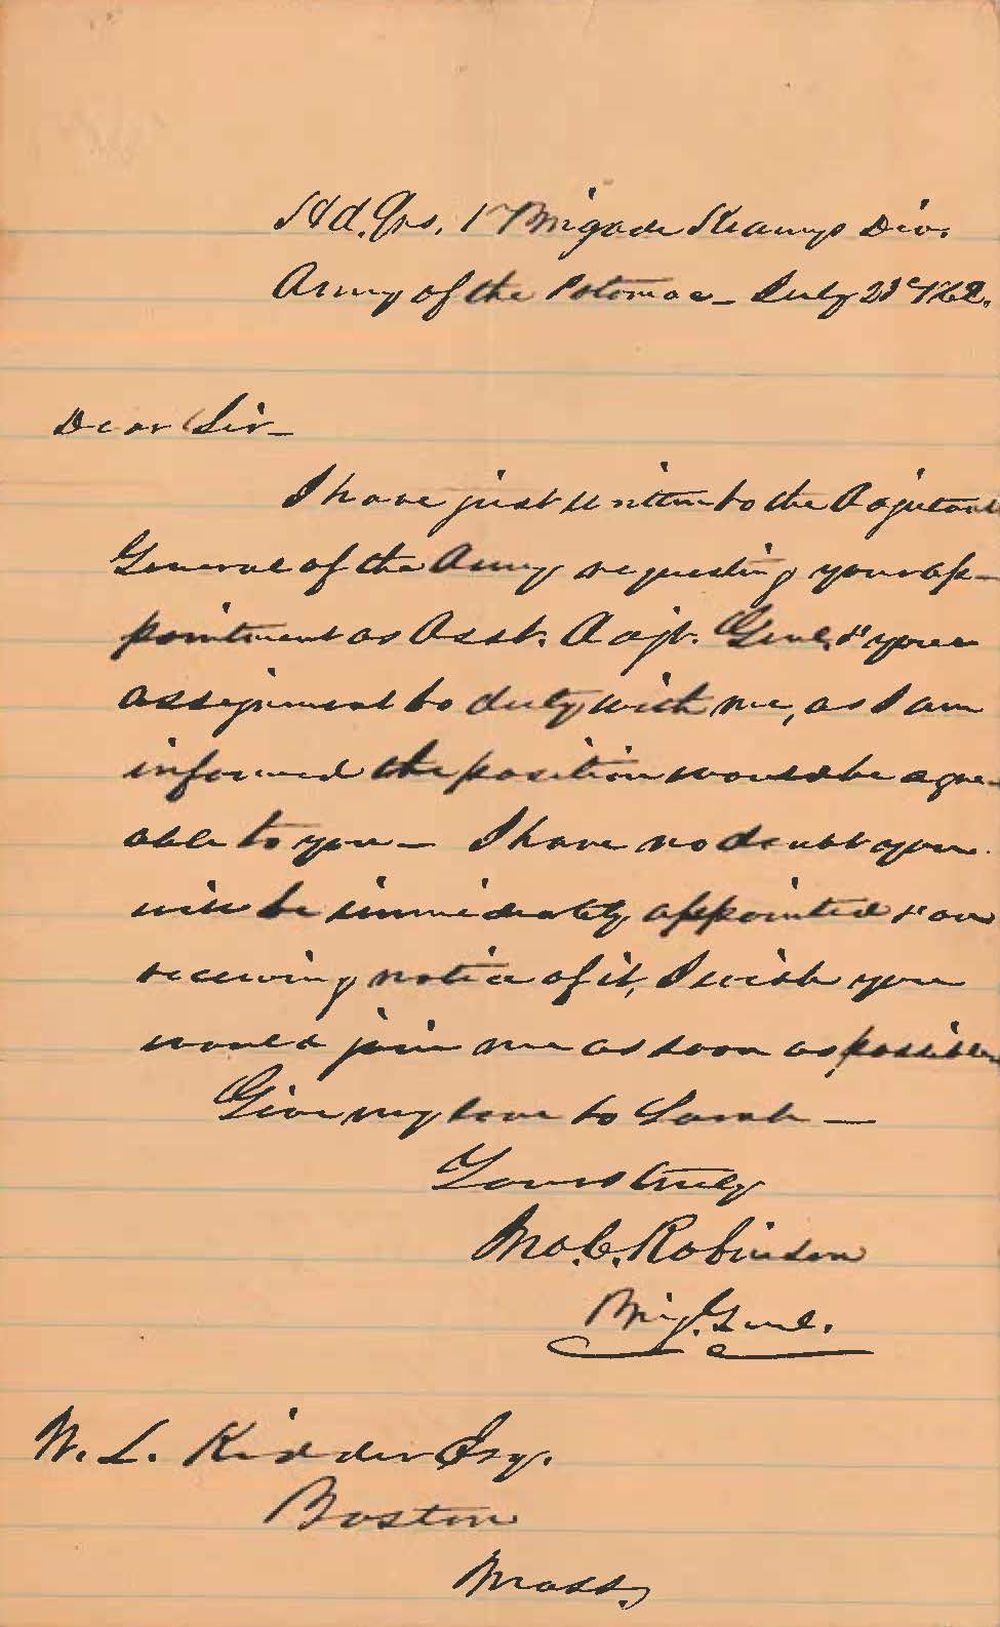 Hd. Qrs. 1st Brigade Kearnys Div.
Army of the Potomac - July 23d/62.
Dear Sir -
I have just written to the Adjutant
General of the Army requesting your ap-
pointment as Asst. Adjt. Genl. & your
assignment to duty with me, as I am
informed the position would be agre-
able to you - I have no doubt you
will be immediately appointed & on
receiving notice of it, I wish you
would join me as soon as possible
Give my love to Sarah -
Yours truly
Jno. C. Robinson
Brig. Genl.
W. L. Kidder Esq.
Boston
Mass.